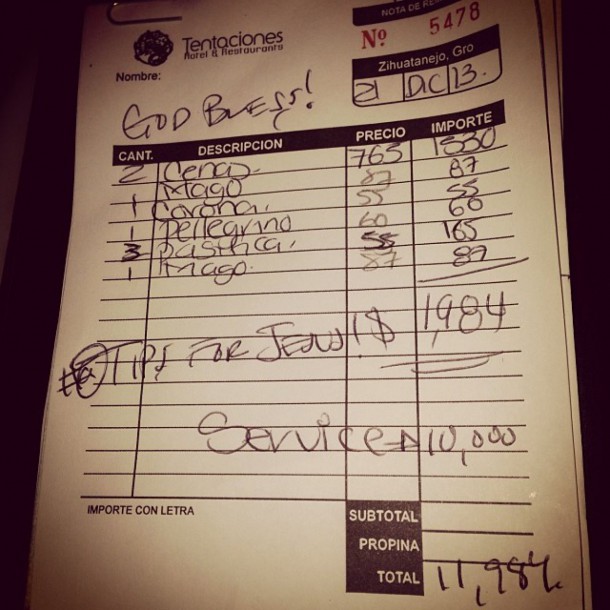 NOTA DE RE
Tentaciones
Hotel & Restaurante
Nº 5478
Nombre:
Zihuatanejo, Gro
21 DIC 13.
GOD BLESS!
CANT. DESCRIPCION PRECIO IMPORTE
2 Cenas. 765 1530
1 Mago 87 87
1 Corona. 55 55
1 Pellegrino 60 60
3 Pasifica. 55 165
1 Mago. 87 87
1,984
@TIPS FOR JESUS! $
Service → 10,000
IMPORTE CON LETRA
SUBTOTAL
PROPINA
TOTAL 11,984.